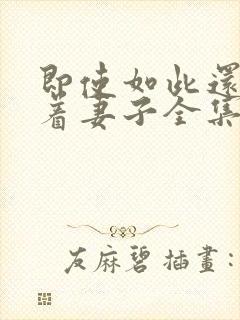 即使如此還
着妻子全集
友麻碧 插畫: